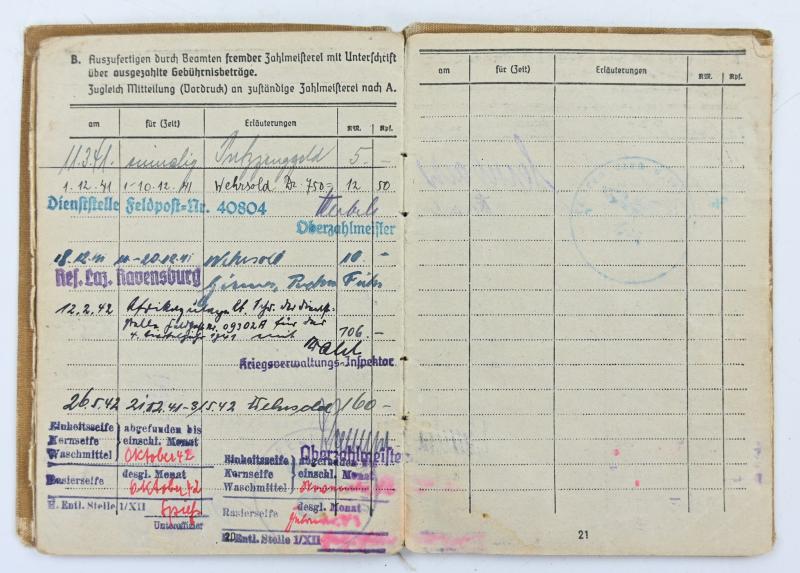 B. Auszufertigen durch Beamten fremder Zahlmeisterei mit Unterschrift
über ausgezahlte Gebührnisbeträge.
Zugleich Mitteilung (Vordruck) an zuständige Zahlmeisterei nach A.
am für (Zeit) Erläuterungen RM. Rpf.
11.3.41. einmalig Putzzeuggeld 5.-
1.12.41 1-10.12.41 Wehrsold Dr. 750= 12 50
Dienststelle Feldpost-Nr. 40804
Oberzahlmeister
18.12.41 -20.12.41 Wehrsold 10.-
Res. Laz. Ravensburg
12.2.42 Afrikazulage lt. der Dienst-
stelle Feldpost Nr. 09302A für das
4. 1941 mit 106.-
Kriegsverwaltungs-Inspektor
26.5.42 21.12.41-31.5.42 Wehrsold 160-
Oberzahlmeister
Einheitsseife abgefunden bis
Kernseife einschl. Monat
Waschmittel Oktober 42
Rasierseife desgl. Monat
Oktober 42
H. Entl. Stelle 1/XII
Unteroffizier
Einheitsseife abgefunden
Kernseife einschl. Monat
Waschmittel
Rasierseife desgl. Monat
H. Entl. Stelle 1/XII
20
am für (Zeit) Erläuterungen RM. Rpf.
21